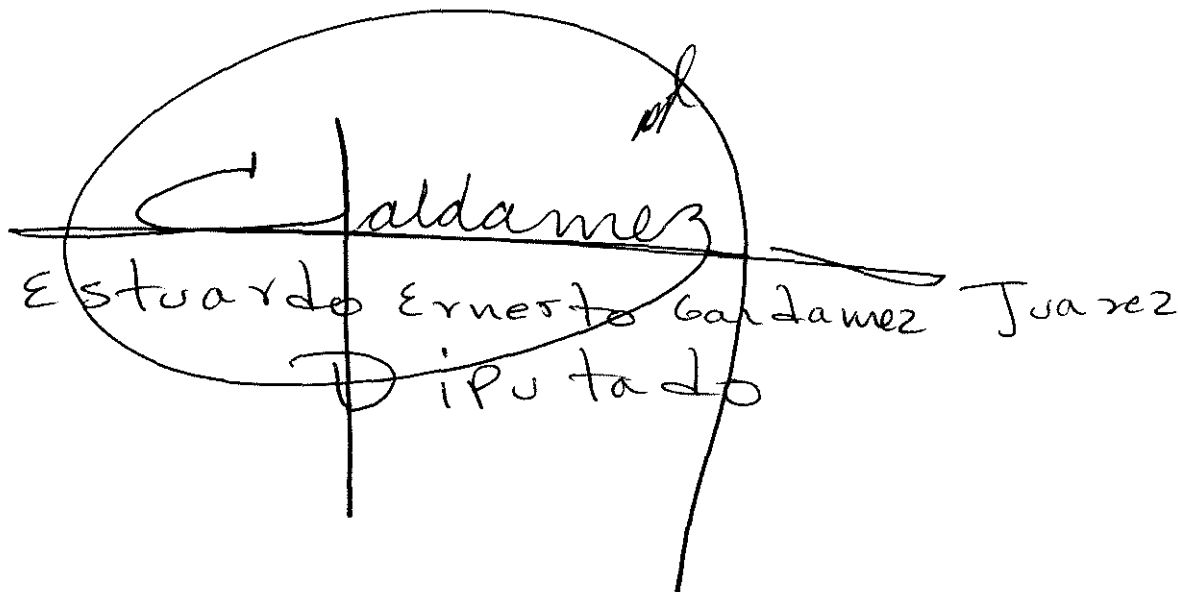 Galdamez
Estuardo Ernesto Galdamez Juarez
Diputado